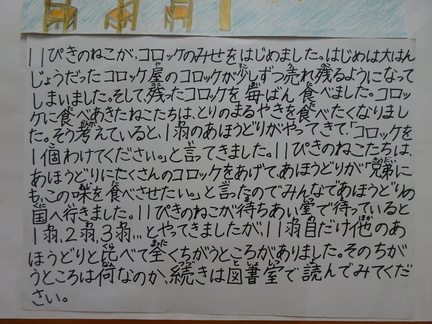 11ぴきのねこが、コロッケのみせをはじめました。はじめは大はん
じょうだったコロッケ屋のコロッケが少しずつ売れ残るようになって
しまいました。そして、残ったコロッケを毎ばん食べました。コロッ
ケに食べあきたねこたちは、とりのまるやきを食べたくなりまし
た。そう考えていると、1羽のあほうどりがやってきて、「コロッケを
1個わけてください。」と言ってきました。11ぴきのねこたちは、
あほうどりにたくさんのコロッケをあげて、あほうどりが「兄弟に
も、この味を食べさせたい。」と言ったのでみんなであほうどりの
国へ行きました。11ぴきのねこが待ちあい室で待っていると
1羽、2羽、3羽…とやってきましたが、11羽目だけ他のあ
ほうどりと比べて全くちがうところがありました。そのちが
うところは何なのか、続きは図書室で読んでみてくだ
さい。